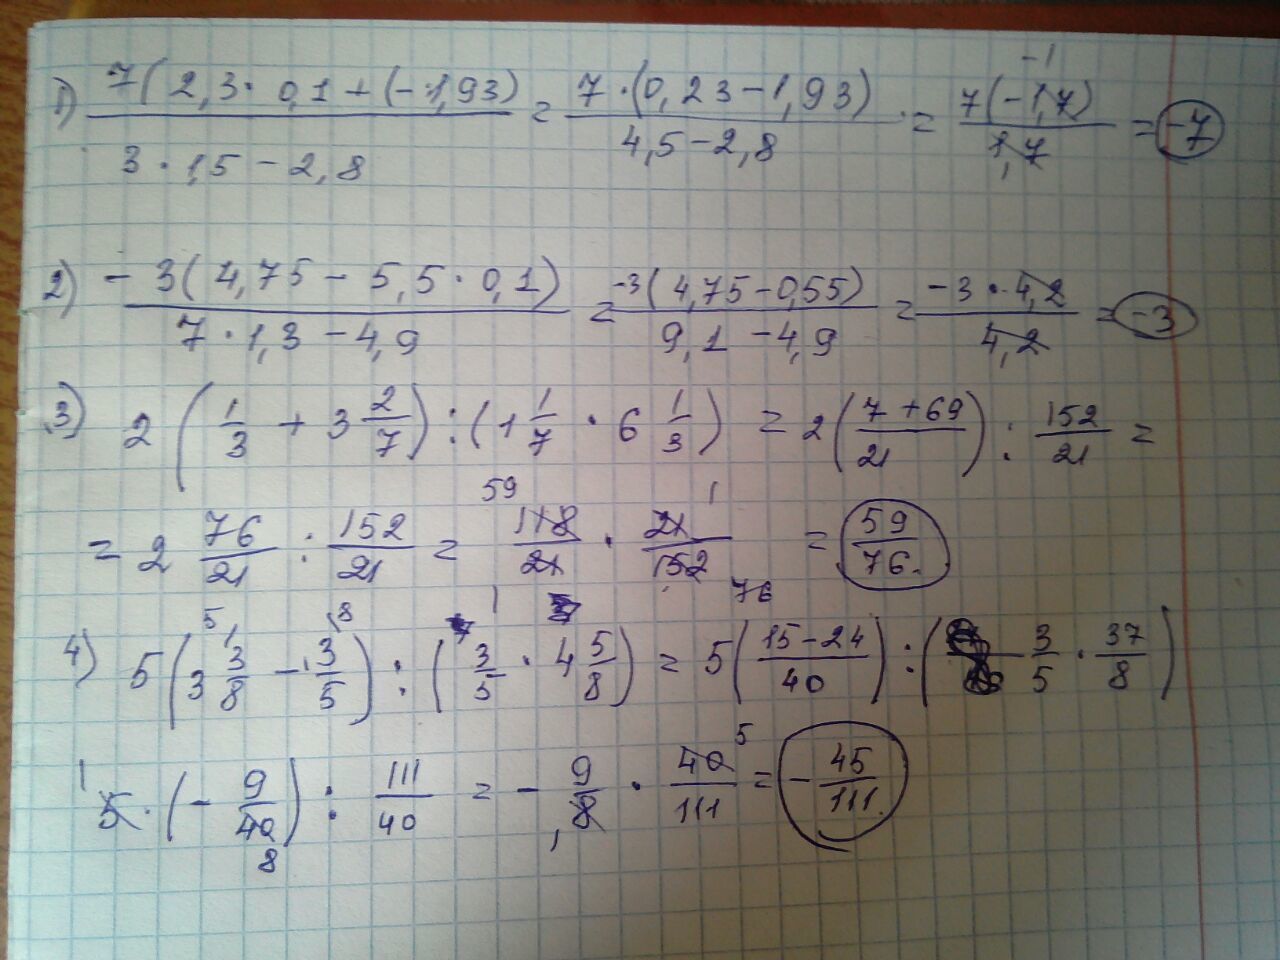 1) 7(2,3·0,1+(-1,93) / 3·1,5-2,8 = 7·(0,23-1,93) / 4,5-2,8 = 7(-1,7) -1 / 1,7 = -7
2) -3(4,75-5,5·0,1) / 7·1,3-4,9 = -3(4,75-0,55) / 9,1-4,9 = -3·4,2 / 4,2 = -3
3) 2(1/3+3 2/7):(1 1/7·6 1/3) = 2(7+69 / 21):152/21 =
= 2 76/21:152/21 = 118 59/21·21 1/152 76 = 59/76.
4) 5(3 3/8 5-1 3/5 8):(3/5·4 5/8) = 5(15-24 / 40):(3/5·37/8)
1 5·(-9/40 8):111/40 = -9/8·40 5/111 = -45/111.